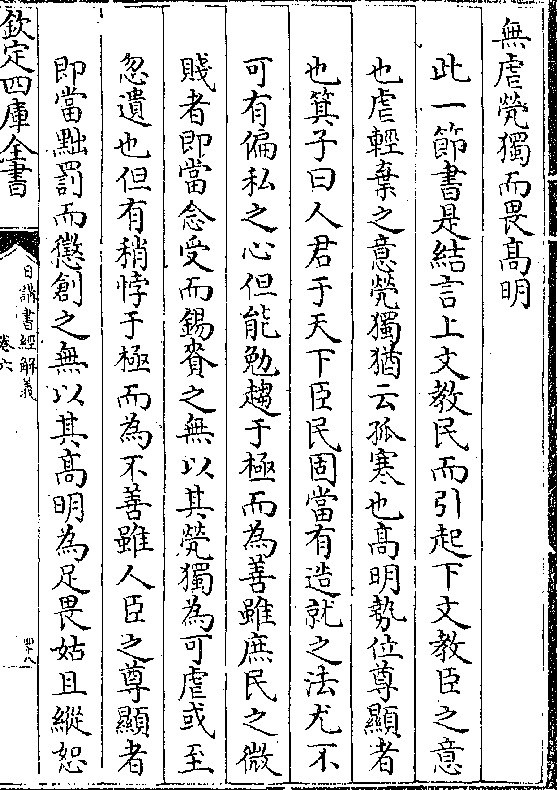 無虐煢獨而畏髙明
此一節書是結言上文教民而引起下文教臣之意
也虐輕棄之意煢獨猶云孤寒也髙明勢位尊顯者
也箕子曰人君于天下臣民固當有造就之法尤不
可有偏私之心但能勉趨于極而為善雖庶民之微
賤者即當念受而錫賚之無以其煢獨為可虐或至
忽遺也但有稍悖于極而為不善雖人臣之尊顯者
即當黜罰而懲創之無以其髙明為足畏姑且縱恕
欽定四庫全書
日講書經解義
卷六
四十八